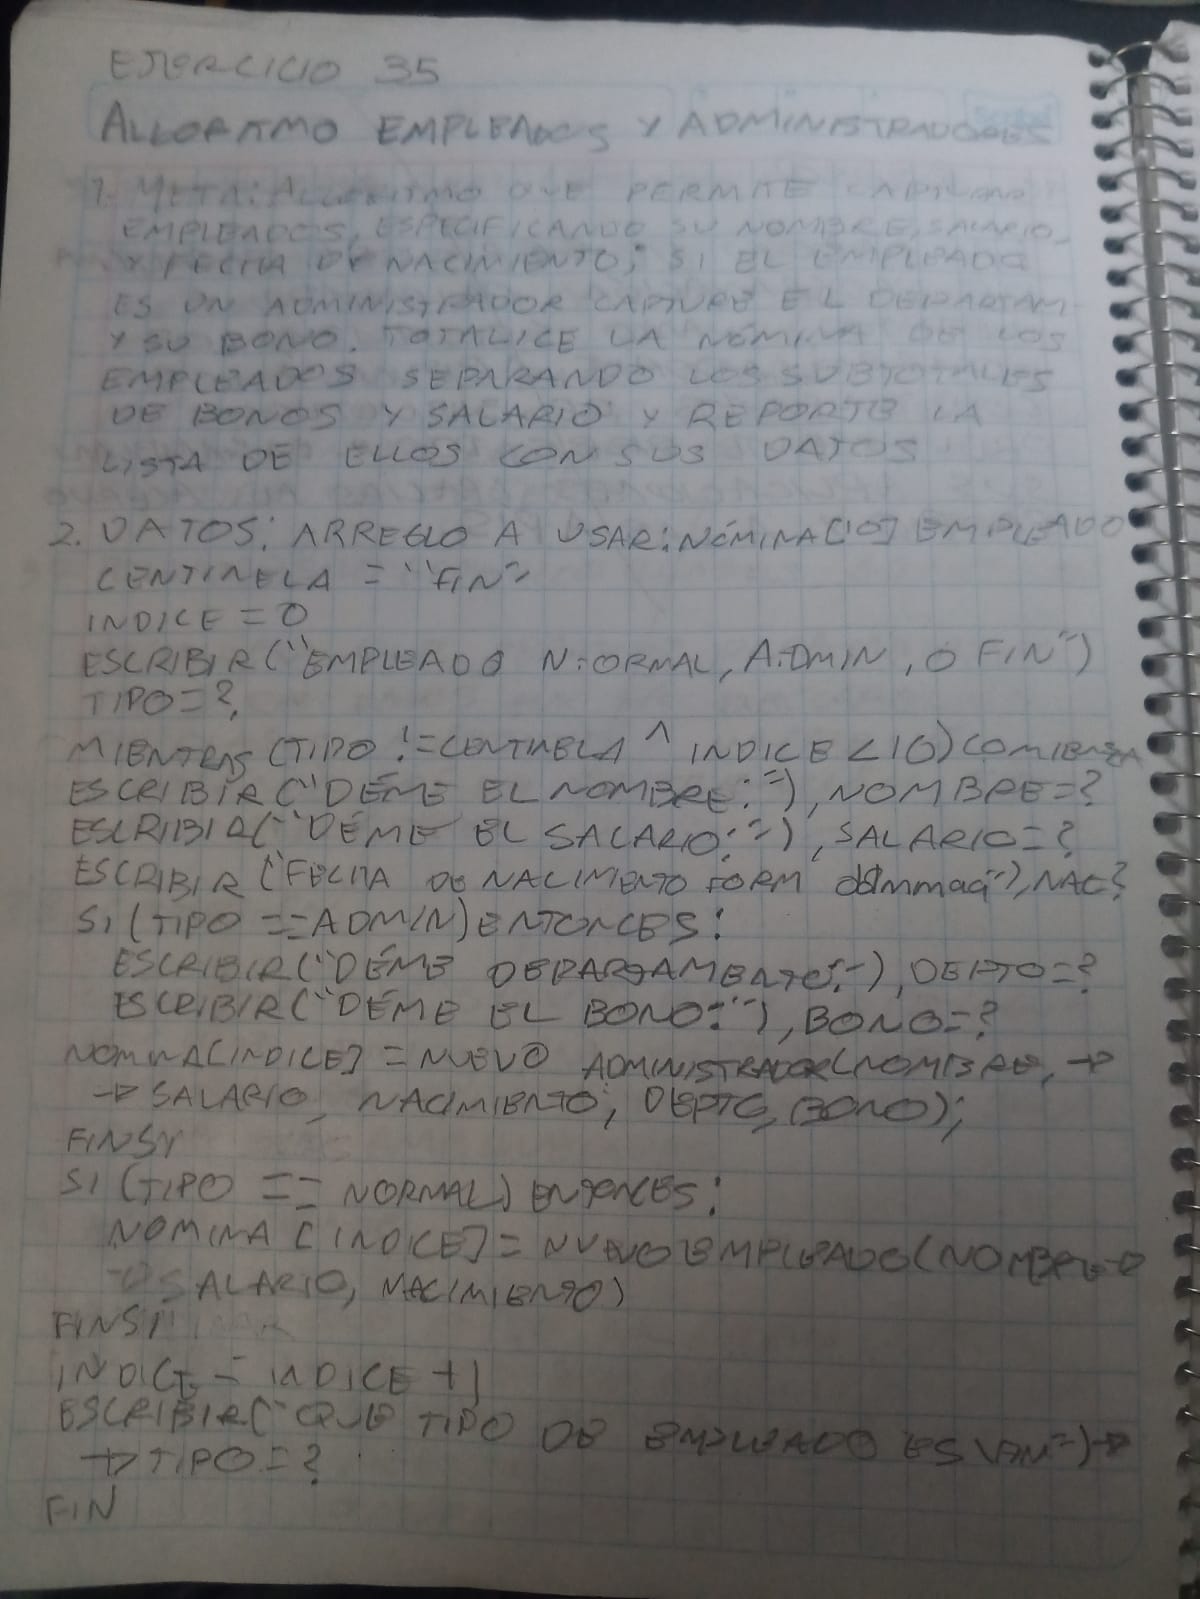 EJERCICIO 35
ALGORITMO EMPLEADOS Y ADMINISTRADORES
1. META: ALGORITMO QUE PERMITE CAPTURAR
EMPLEADOS, ESPECIFICANDO SU NOMBRE, SALARIO,
Y FECHA DE NACIMIENTO; SI EL EMPLEADO
ES UN ADMINISTRADOR CAPTURE EL DEPARTAM
Y SU BONO. TOTALICE LA NÓMINA DE LOS
EMPLEADOS SEPARANDO LOS SUBTOTALES
DE BONOS Y SALARIO Y REPORTE LA
LISTA DE ELLOS CON SUS DATOS
2. DATOS: ARREGLO A USAR: NÓMINA[10] EMPLEADO
CENTINELA = "FIN"
INDICE = 0
ESCRIBIR("EMPLEADO N:ORMAL, A:DMIN, O FIN")
TIPO=?
MIENTRAS (TIPO != CENTINELA ^ INDICE < 10) COMIENZA
ESCRIBIR("DÉME EL NOMBRE:"), NOMBRE=?
ESCRIBIR("DÉME EL SALARIO:"), SALARIO=?
ESCRIBIR("FECHA DE NACIMIENTO FORM"), NAC?
SI (TIPO == ADMIN) ENTONCES:
ESCRIBIR("DÉME DEPARTAMENTO:"), DEPTO=?
ESCRIBIR("DÉME EL BONO:"), BONO=?
NOMINA[INDICE] = NUEVO ADMINISTRADOR(NOMBRE, →
→ SALARIO, NACIMIENTO, DEPTO, BONO);
FINSI
SI (TIPO == NORMAL) ENTONCES:
NOMINA [INDICE] = NUEVO EMPLEADO(NOMBRE →
→ SALARIO, NACIMIENTO)
FINSI
INDICE = INDICE + 1
ESCRIBIR("QUE TIPO DE EMPLEADO ES") →
→ TIPO = ?
FIN